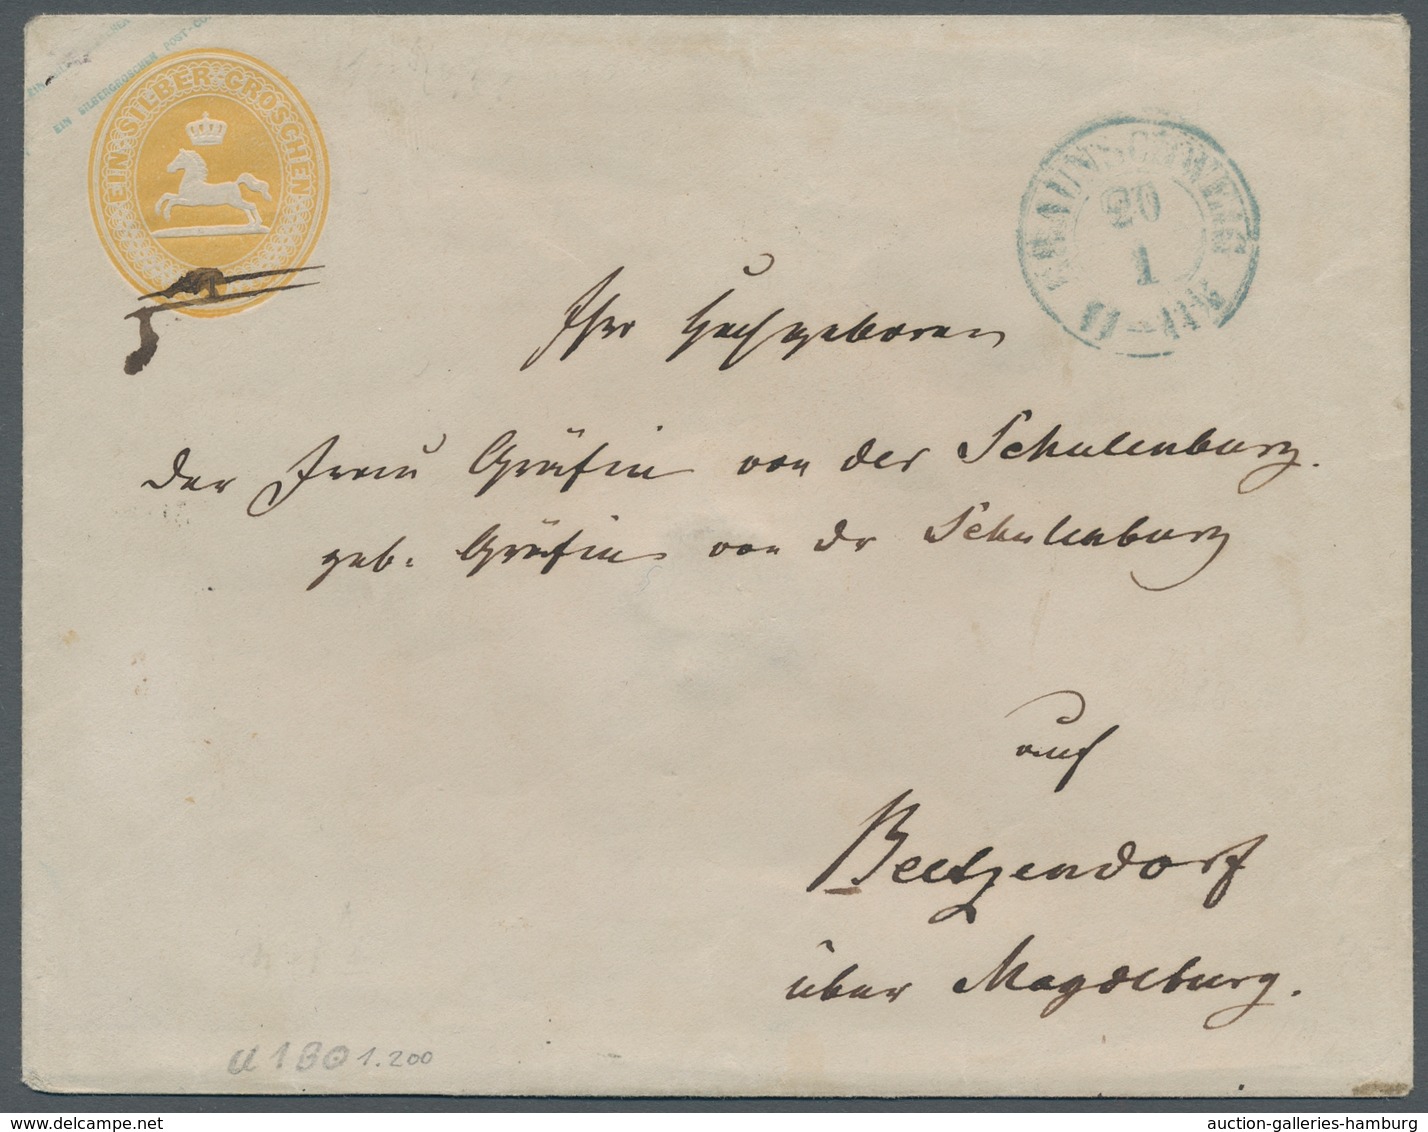 EIN SILBERGROSCHEN POST-COU
EIN SILBER GROSCHEN
BRAUNSCHWEIG
20
1
Ihr Hochgeboren
der Frau Gräfin von der Schulenburg.
geb. Gräfin von der Schulenburg
auf
Beetzendorf
über Magdeburg.
1.200
auction-galleries-hamburg